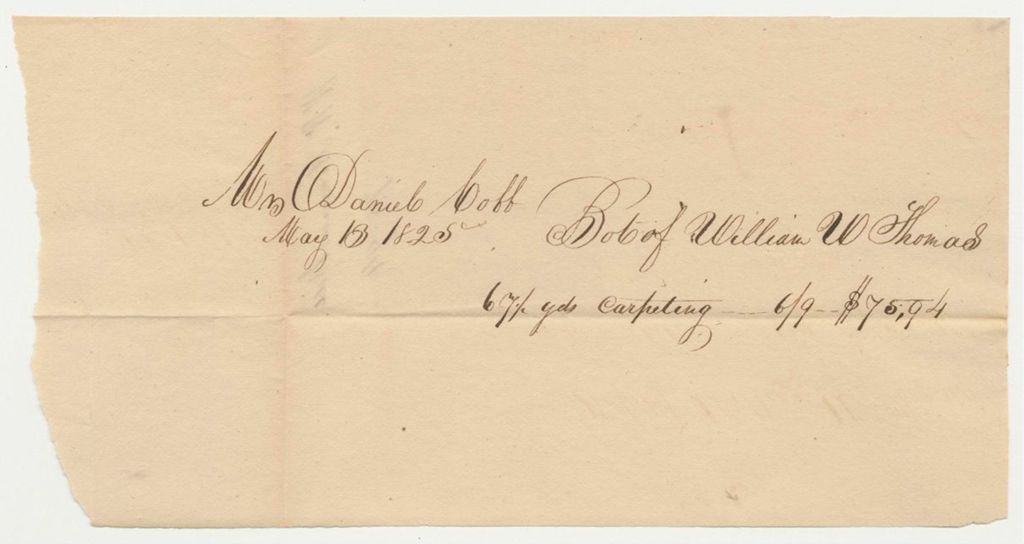 Mr Daniel Cobb
May 13 1825 Bot of William W Thomas
67½ yds carpeting --- 6/9 -- $75,94